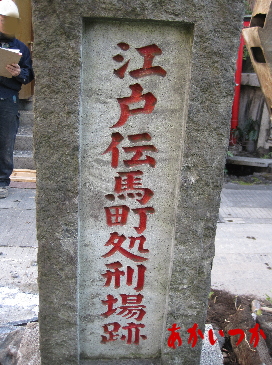 江戸伝馬町処刑場跡
あかいつか